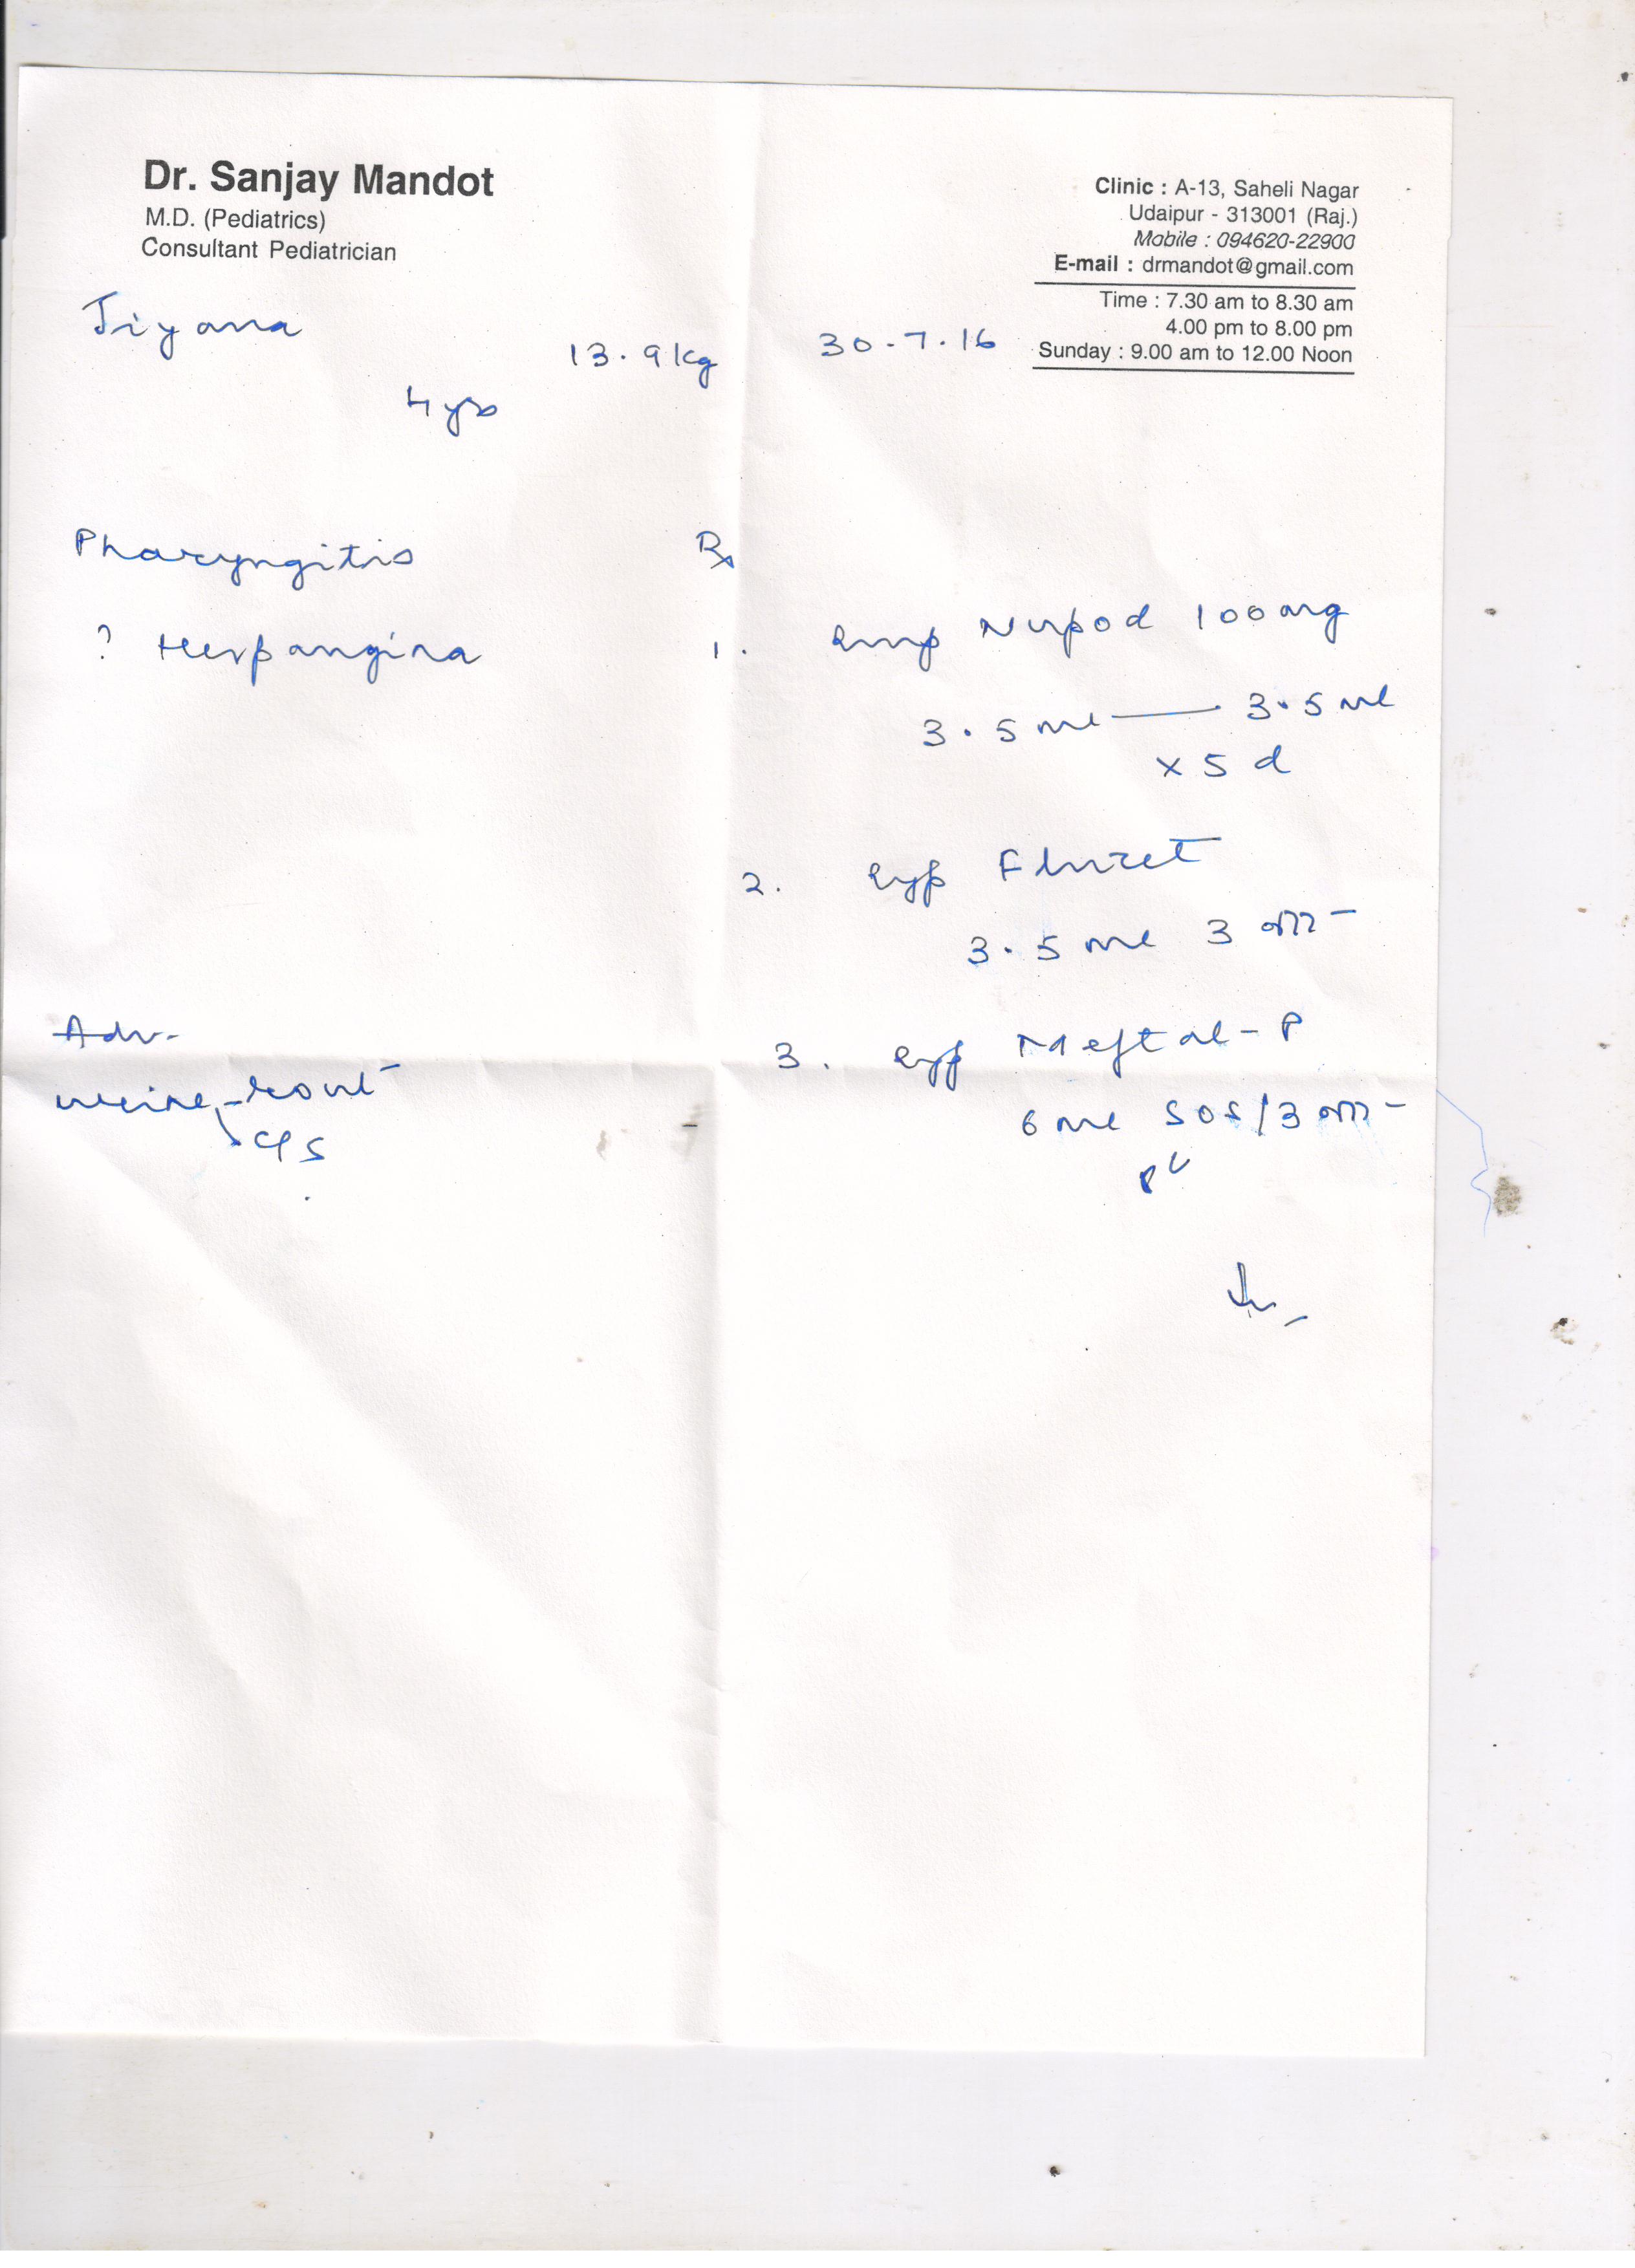 Dr. Sanjay Mandot
M.D. (Pediatrics)
Consultant Pediatrician
Clinic : A-13, Saheli Nagar
Udaipur - 313001 (Raj.)
Mobile : 094620-22900
E-mail : drmandot@gmail.com
Time : 7.30 am to 8.30 am
4.00 pm to 8.00 pm
Sunday : 9.00 am to 12.00 Noon
Jiyana
13.9 kg 30.7.16
4 yrs
Pharyngitis
? Herpangina
Rx
1. Nupod 100 mg
3.5 ml — 3.5 ml
x 5 d
2. Syp
3.5 ml 3 बार
3. Syp Meftal-P
6 ml SOS/3 बार
Adv-
urine - rout
c/s